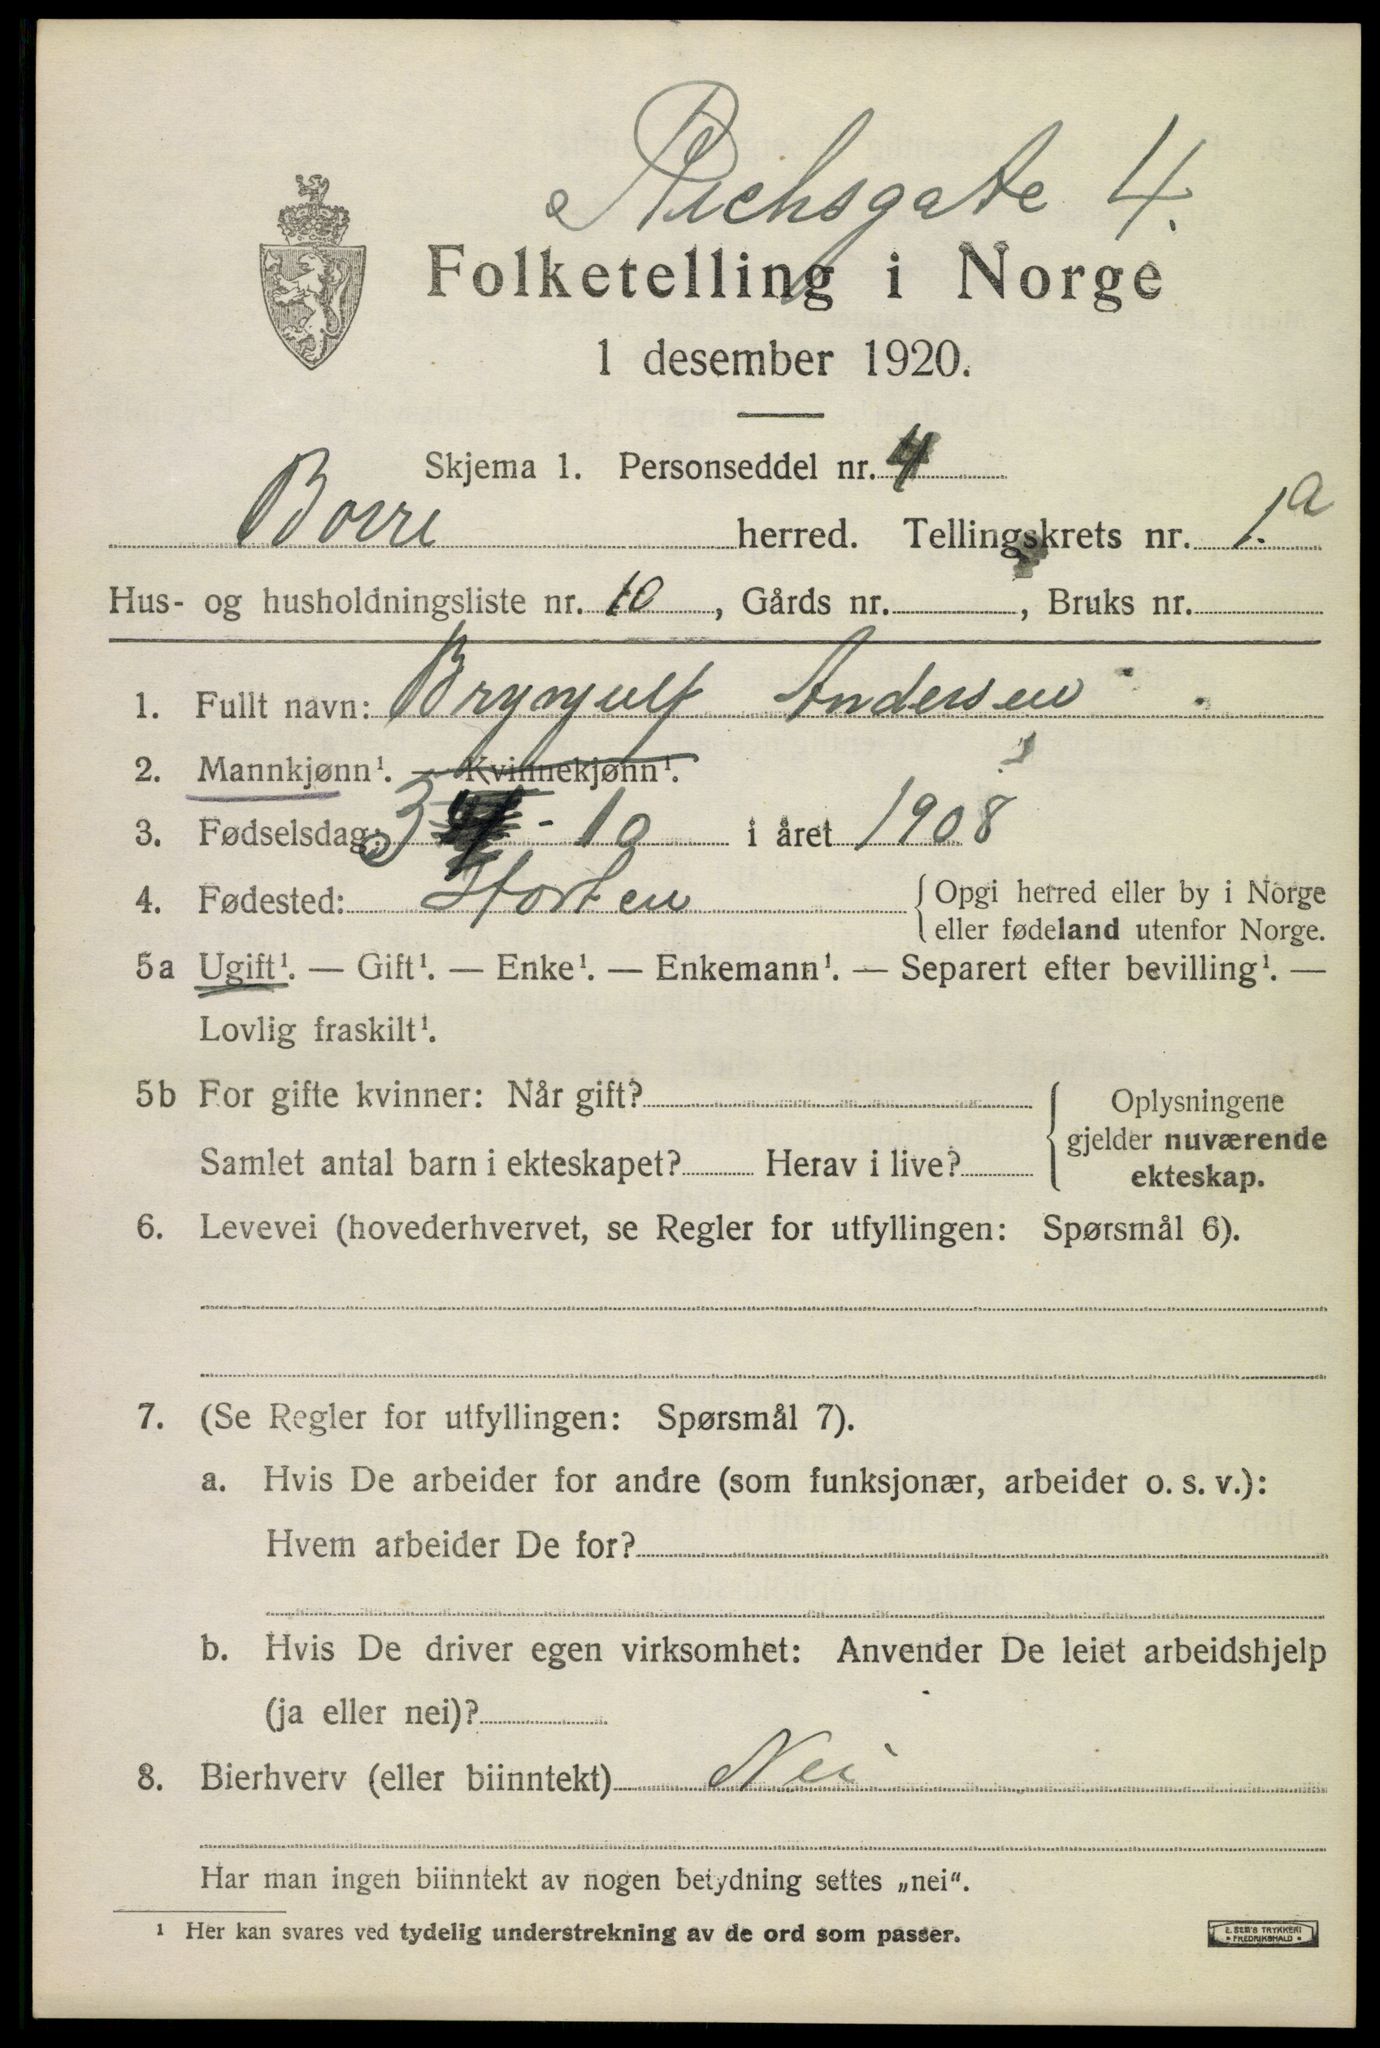 Richsgate 4.
Folketelling i Norge
1 desember 1920.
Skjema 1. Personseddel nr. 4
Borre herred. Tellingskrets nr. 1.a
Hus- og husholdningsliste nr. 10, Gårds nr. , Bruks nr.
1. Fullt navn: Brynjulf Andersen
2. Mannkjønn¹. — Kvinnekjønn¹.
3. Fødselsdag: 3 - 10 i året 1908
4. Fødested: Horten { Opgi herred eller by i Norge
eller fødeland utenfor Norge.
5a Ugift¹. — Gift¹. — Enke¹. — Enkemann¹. — Separert efter bevilling¹. —
Lovlig fraskilt¹.
5b For gifte kvinner: Når gift? { Oplysningene
Samlet antal barn i ekteskapet? Herav i live? gjelder nuværende
ekteskap.
6. Levevei (hovederhvervet, se Regler for utfyllingen: Spørsmål 6).
7. (Se Regler for utfyllingen: Spørsmål 7).
a. Hvis De arbeider for andre (som funksjonær, arbeider o. s. v.):
Hvem arbeider De for?
b. Hvis De driver egen virksomhet: Anvender De leiet arbeidshjelp
(ja eller nei)?
8. Bierhverv (eller biinntekt) Nei
Har man ingen biinntekt av nogen betydning settes „nei“.
¹ Her kan svares ved tydelig understrekning av de ord som passer.
E. SEM'S TRYKKERI
FREDRIKSHALD